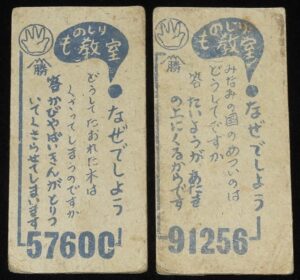 ものしり
教室
勝
なぜでしよう
どうしてたおれた木は
くさってしまうのですか
答 かびやばいきんがとりつ
いてくさらせてしまいます
57600
ものしり
教室
勝
なぜでしよう
みなみの国のあついのは
どうしてですか
答 たいようがあたま
の上にくるからです
91256